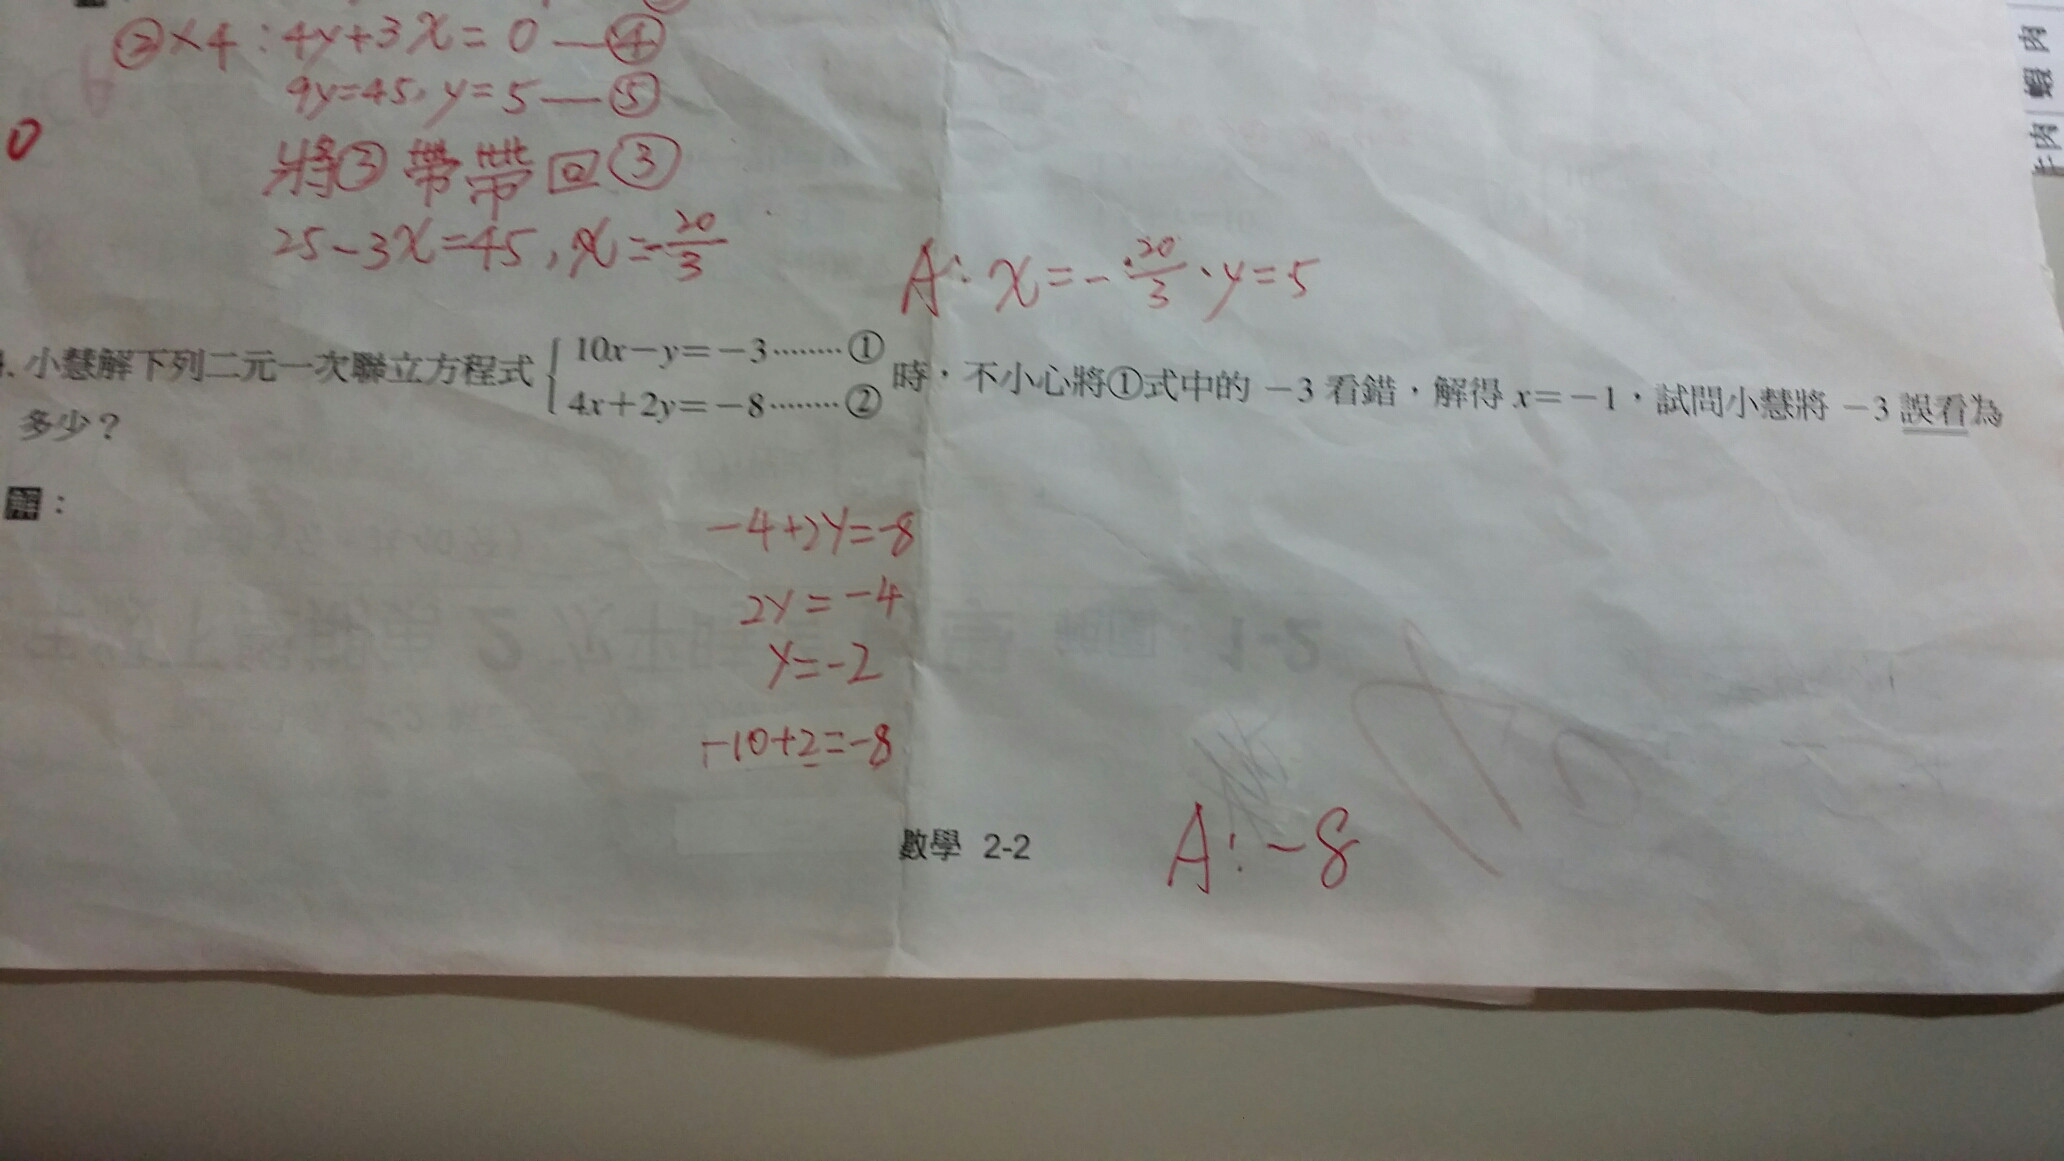 ②×4:4y+3x=0—④
9y=45,y=5—⑤
0
將③帶帶回③
25-3x=45,x=-20/3
A:x=-20/3·y=5
小慧解下列二元一次聯立方程式 { 10x-y=-3········① 時,不小心將①式中的 -3 看錯,解得 x=-1,試問小慧將 -3 誤看為
4x+2y=-8········②
多少?
解:
-4+2y=-8
2y=-4
y=-2
-10+2=-8
A:-8
數學 2-2
蝦 肉
牛肉